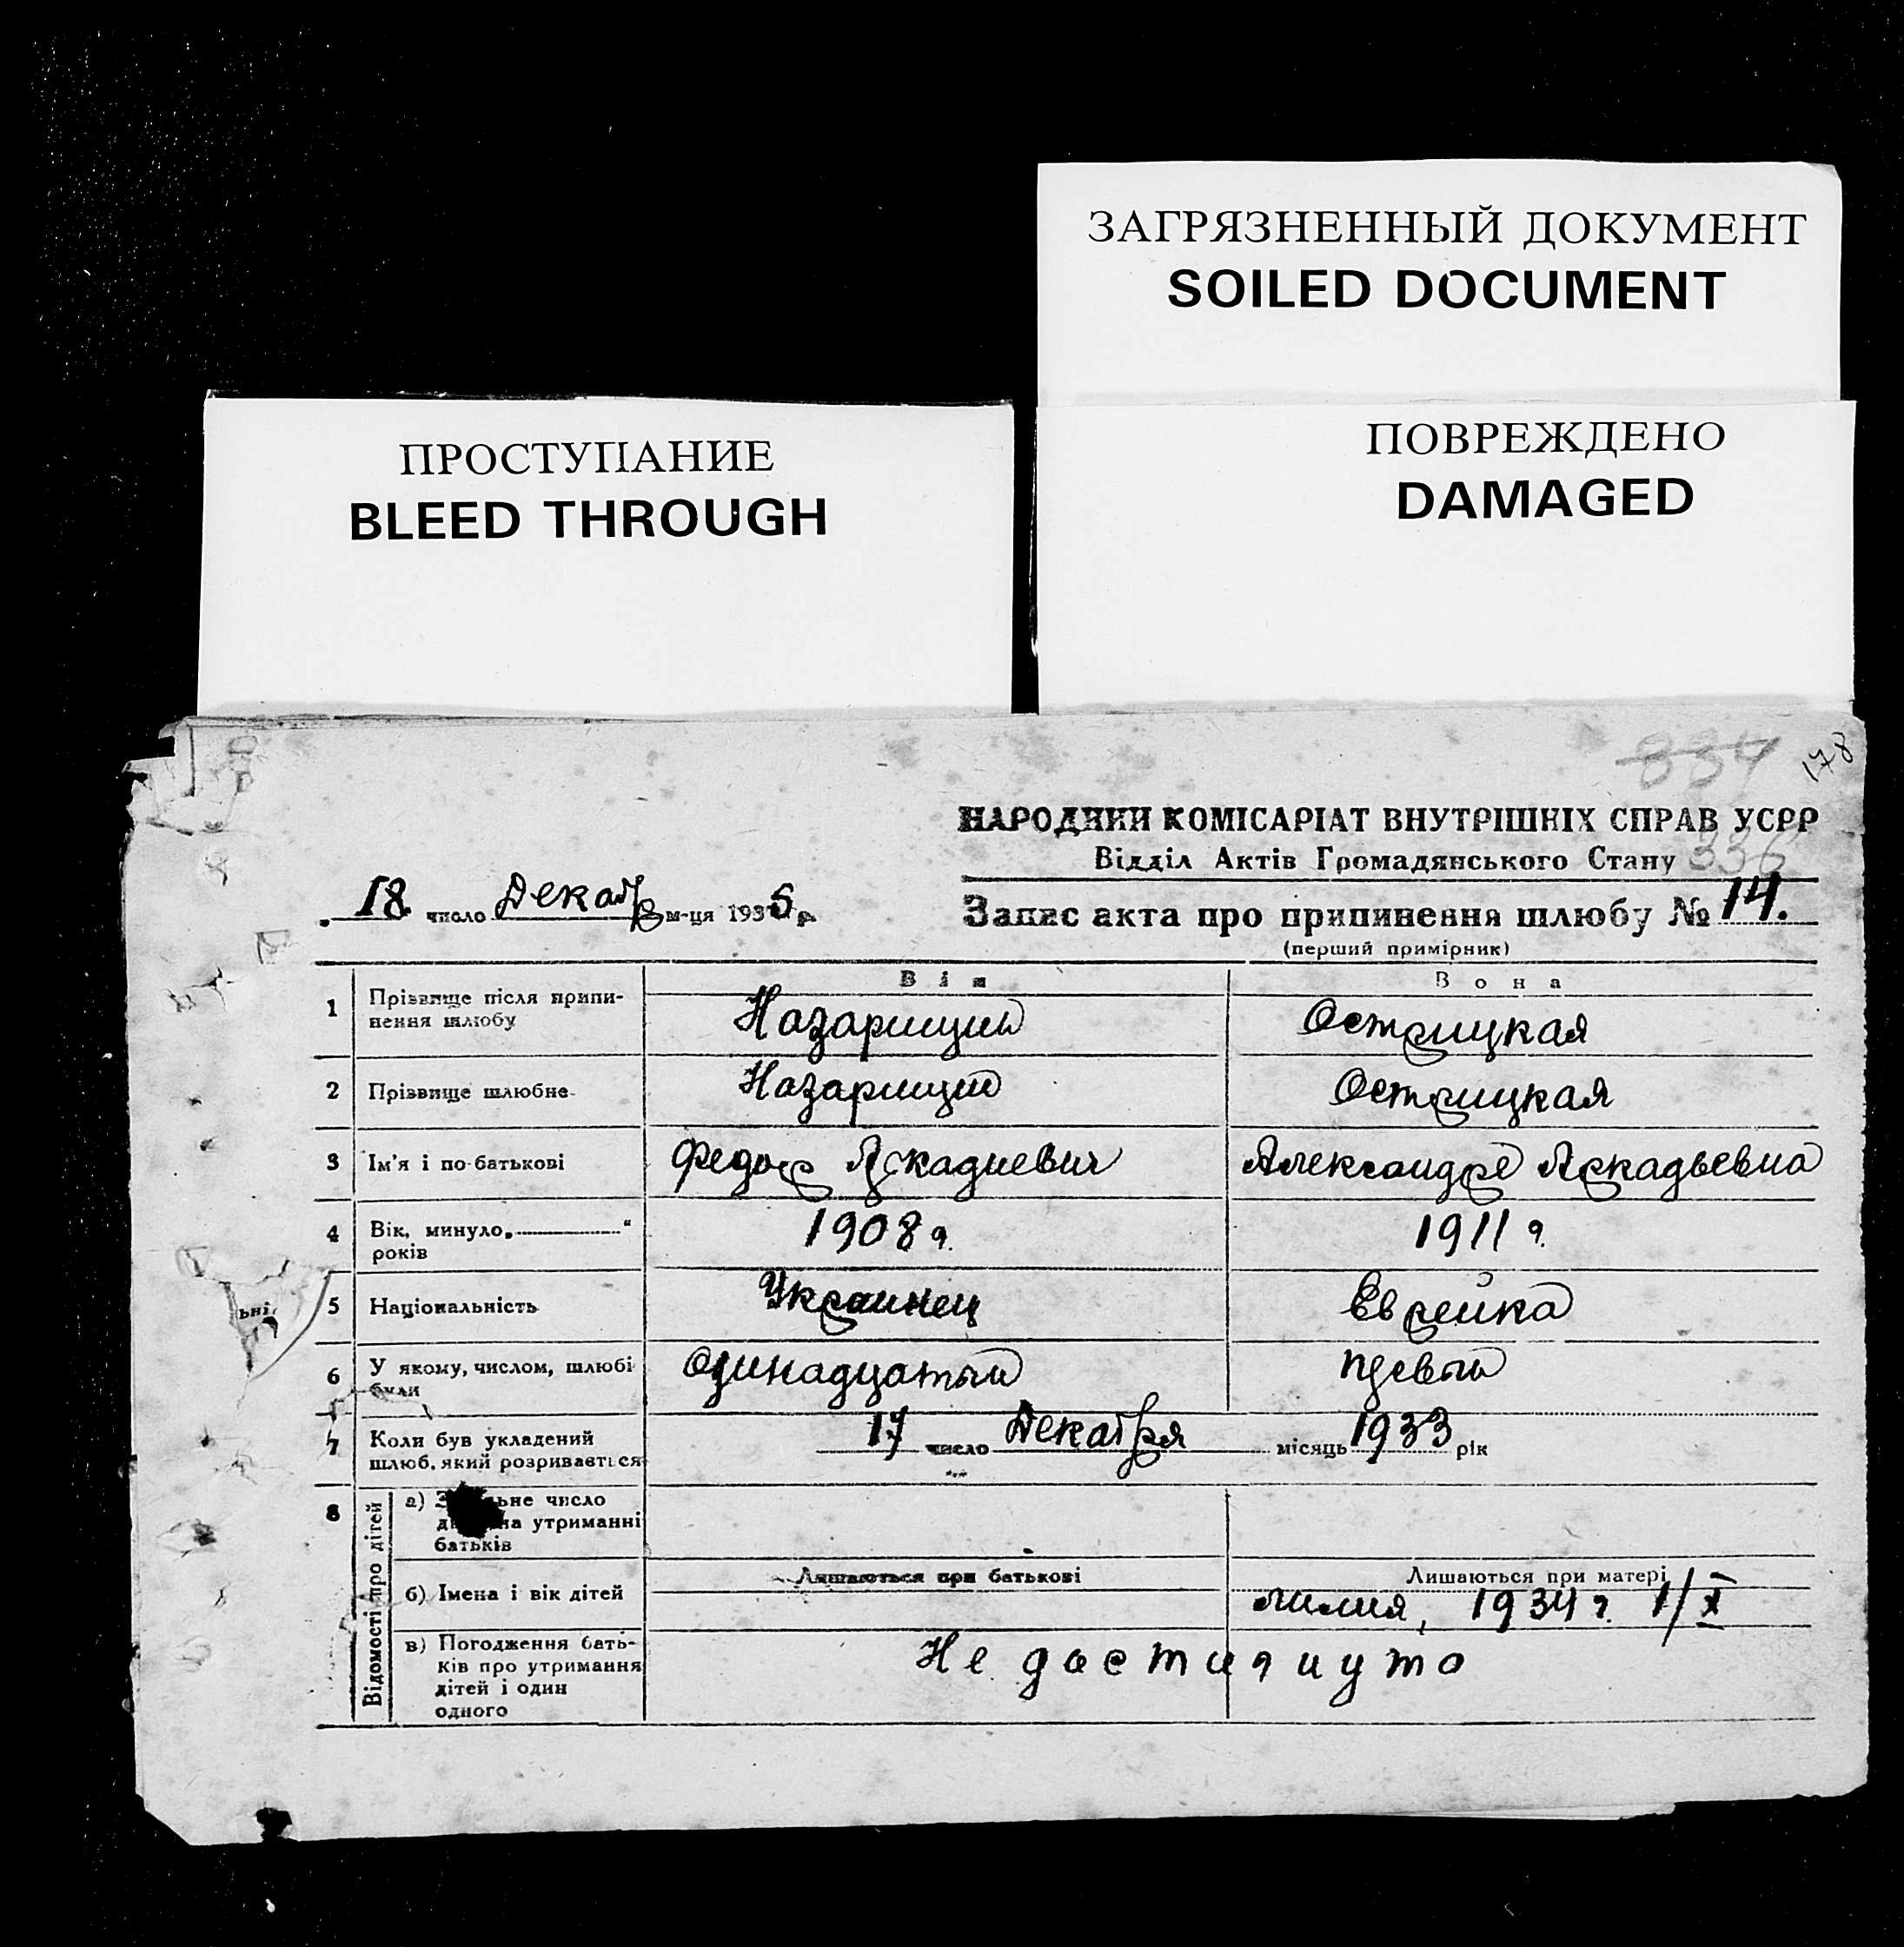 ЗАГРЯЗНЕННЫЙ ДОКУМЕНТ
SOILED DOCUMENT
ПРОСТУПАНИЕ
BLEED THROUGH
ПОВРЕЖДЕНО
DAMAGED
834 178
НАРОДНИЙ КОМІСАРІАТ ВНУТРІШНІХ СПРАВ УСРР
Відділ Актів Громадянського Стану 336
18 число Декабря м-ця 1935 р.
Запис акта про припинення шлюбу № 14.
(перший примірник)
Він Вона
1 Прізвище після припи-
нення шлюбу Назариций Острицкая
2 Прізвище шлюбне Назариций Острицкая
3 Ім'я і по-батькові Федор Аркадиевич Александра Аркадьевна
4 Вік, минуло „ “
років 1908 г. 1911 г.
5 Національність Украинец Еврейка
ьні,
6 У якому, числом, шлюбі
були Одинадцатый первый
7 Коли був укладений
шлюб, який розривається 17 число Декабря місяць 1933 рік
8 Відомості про дітей
а) число
на утриманні
батьків
Лишаються при батькові Лишаються при матері
б) Імена і вік дітей Лилия, 1934 г. 1/X
в) Погодження бать-
ків про утримання
дітей і один
одного
Не достигнуто